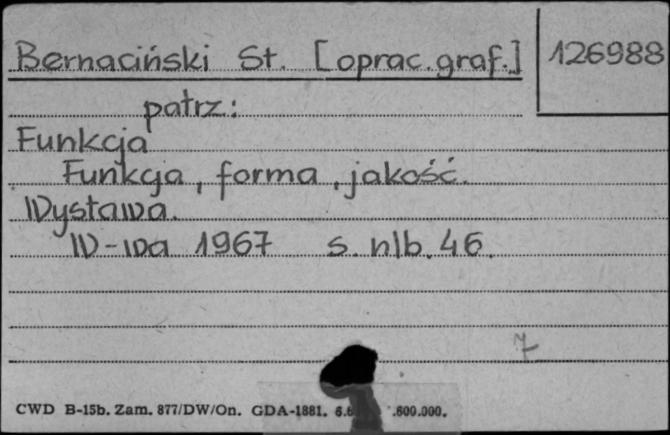 Bernaciński St. [oprac. graf.] 126988
patrz:
Funkcja
Funkcja, forma, jakość.
Wystawa.
W-wa 1967 s. nlb. 46.
7
CWD B-15b. Zam. 877/DW/On. GDA-1881. .600.000.